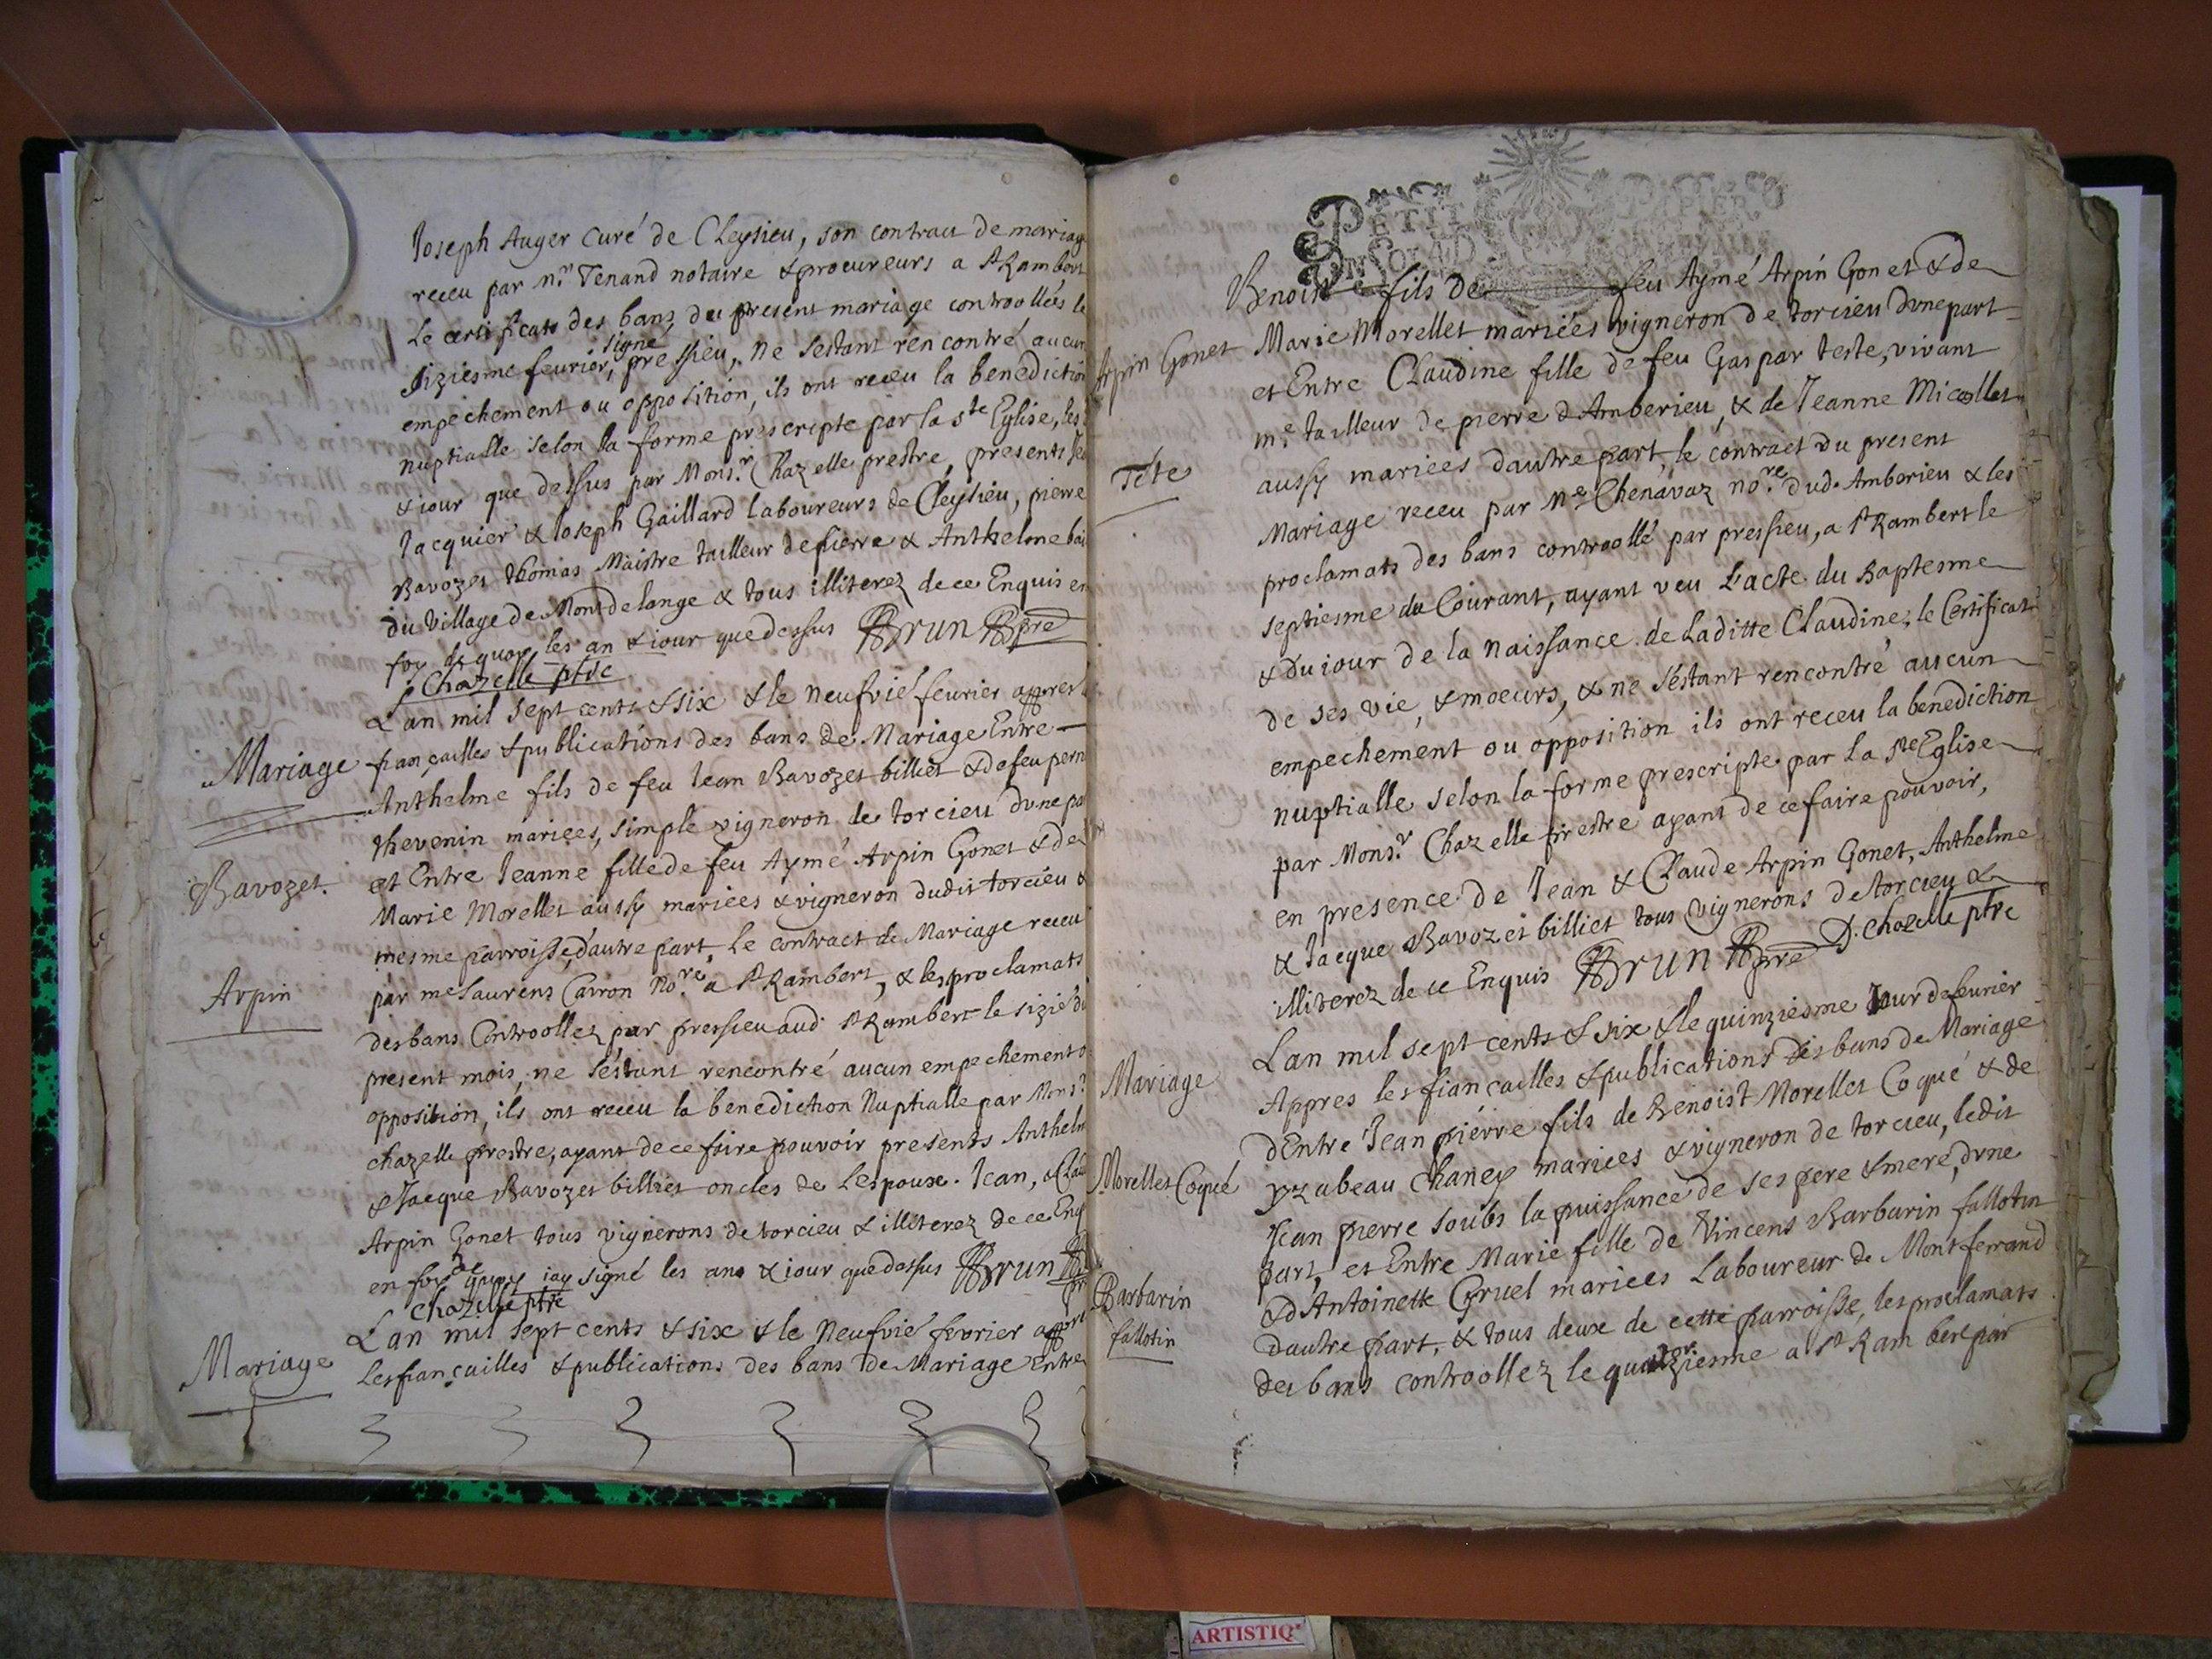 Joseph Auger Curé de Cleysieu, son contract de mariag
receu par mr Tenand notaire & procureurs a St Rambert
Le certificats des bans du present mariage controollées le
siziesme feurier, signé pressieu, ne sestant rencontré aucun
empechement ou opposition, ils ont receu la benediction
nuptialle selon la forme prescripte par la ste Eglise, les
& iour que dessus par Monsr. Chazelle prestre, presents
Jacquier & Joseph Gaillard laboureurs de Cleysieu, pierre
Bavozet thomas Maistre tailleur de pierre & Anthelme
du Village de Montdelange & tous illiterez de ce Enquis en
foy de quoy, les an & iour que dessus Brun pre
Chazelle ptre
Lan mil sept cents & six & le neufvié feurier appres
Mariage
fiançailles & publications des bans de Mariage Entre
Anthelme fils de feu Jean Bavozet billiet & de feu pern
thevenin mariees, simple vigneron de torcieu dune pa
Bavozet.
et Entre Jeanne fille de feu Aymé Arpin Gonet & de
Marie Morellet aussy mariees & vigneron dudit torcieu &
mesme parroisse, dautre part, Le contract de Mariage receu
Arpin
par me Laurens Carron Nore. a St Rambert, & les proclamats
des bans Controollez par pressieu aud. St Rambert le sizié du
present mois, ne sestant rencontré aucun empechement o
opposition, ils ont receu la benediction Nuptialle par Monsr
chazelle prestre, ayant de ce faire pouvoir presents Anthelm
& Jacque Bavozet billiet oncles de Lespoux. Jean, & Clau
Arpin Gonet tous vignerons de torcieu & illiterez de ce Enq
en foy de quoy iay signé les ans & iour que dessus Brun
chazelle ptre
Lan mil sept cents & six & le Neufvié fevrier appre
Mariage
Les fiançailles & publications des bans de Mariage Entre
PETIT PAPIER
UN SOL
Benoist fils de feu Aymé Arpin Gonet & de
Marie Morellet mariées vigneron de torcieu dune part
Arpin Gonet
et Entre Claudine fille de feu Gaspar teste, vivant
me. tailleur de pierre dAmberieu, & de Jeanne Micollet
Tête
aussy mariees dautre part, le contract du present
Mariage receu par Me Chenavaz nore. dud. Amberieu & les
proclamats des bans controollé par pressieu, a St Rambert le
septiesme du Courant, ayant veu Lacte du Baptesme
& du iour de la naissance de Laditte Claudine, le Certificat
de ses vie, & moeurs, & ne sestant rencontré aucun
empechement ou opposition ils ont receu la benediction
nuptialle selon la forme prescripte par la ste Eglise
par Monsr. Chazelle prestre ayant de ce faire pouvoir,
en presence de Jean & Claude Arpin Gonet, Anthelme
& Jacque Bavozet billiet tous vignerons de torcieu &
illiterez de ce Enquis Brun pre D. Chazelle ptre
Lan mil sept cents & six & le quinziesme Jour de feurier
Mariage
Appres les fiancailles & publications des bans de Mariage
dEntre Jean pierre fils de Benoist Morellet Coqué & de
Morellet Coqué
yzabeau Chaney mariees & vigneron de torcieu, ledit
Jean pierre soubs la puissance de ses pere & mere, dune
part, et Entre Marie fille de Vincens Barbarin fallotin
Barbarin
fallotin
& dAntoinette Gruel mariees Laboureur de Montferrand
dautre part, & tous deux de cette parroisse, les proclamats
des bans controollez le quatorziesme a St Rambert par